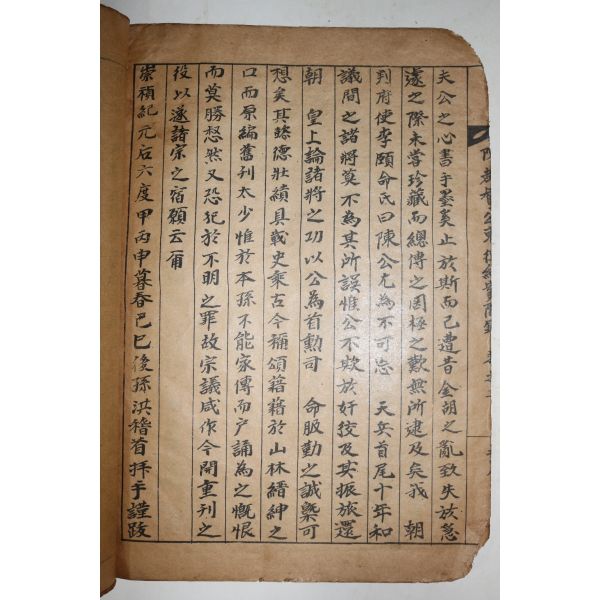 夫公之心書手墨矣止於斯而已遭昔金胡之亂致失於急
遽之際未嘗珍藏而總傳之罔極之歎無所逮及矣我 朝
判府使李頤命氏曰陳公尤為不可忘 天兵首尾十年和
議間之諸將莫不為其所誤惟公不欺於奸狡及其振旅還
朝 皇上論諸將之功以公為首勲可 命服勤之誠槩可
想矣其懿德壯績具載史乘古今稱頌籍籍於山林縉紳之
口而原編舊刊太少惟於本孫不能家傳而户誦為之慨恨
而莫勝愁然又恐犯於不明之罪故宗議咸作今開重刊之
役以遂諸宗之宿願云爾
崇禎紀元后六度甲丙申暮春己巳後孫洪稽首拜手謹跋